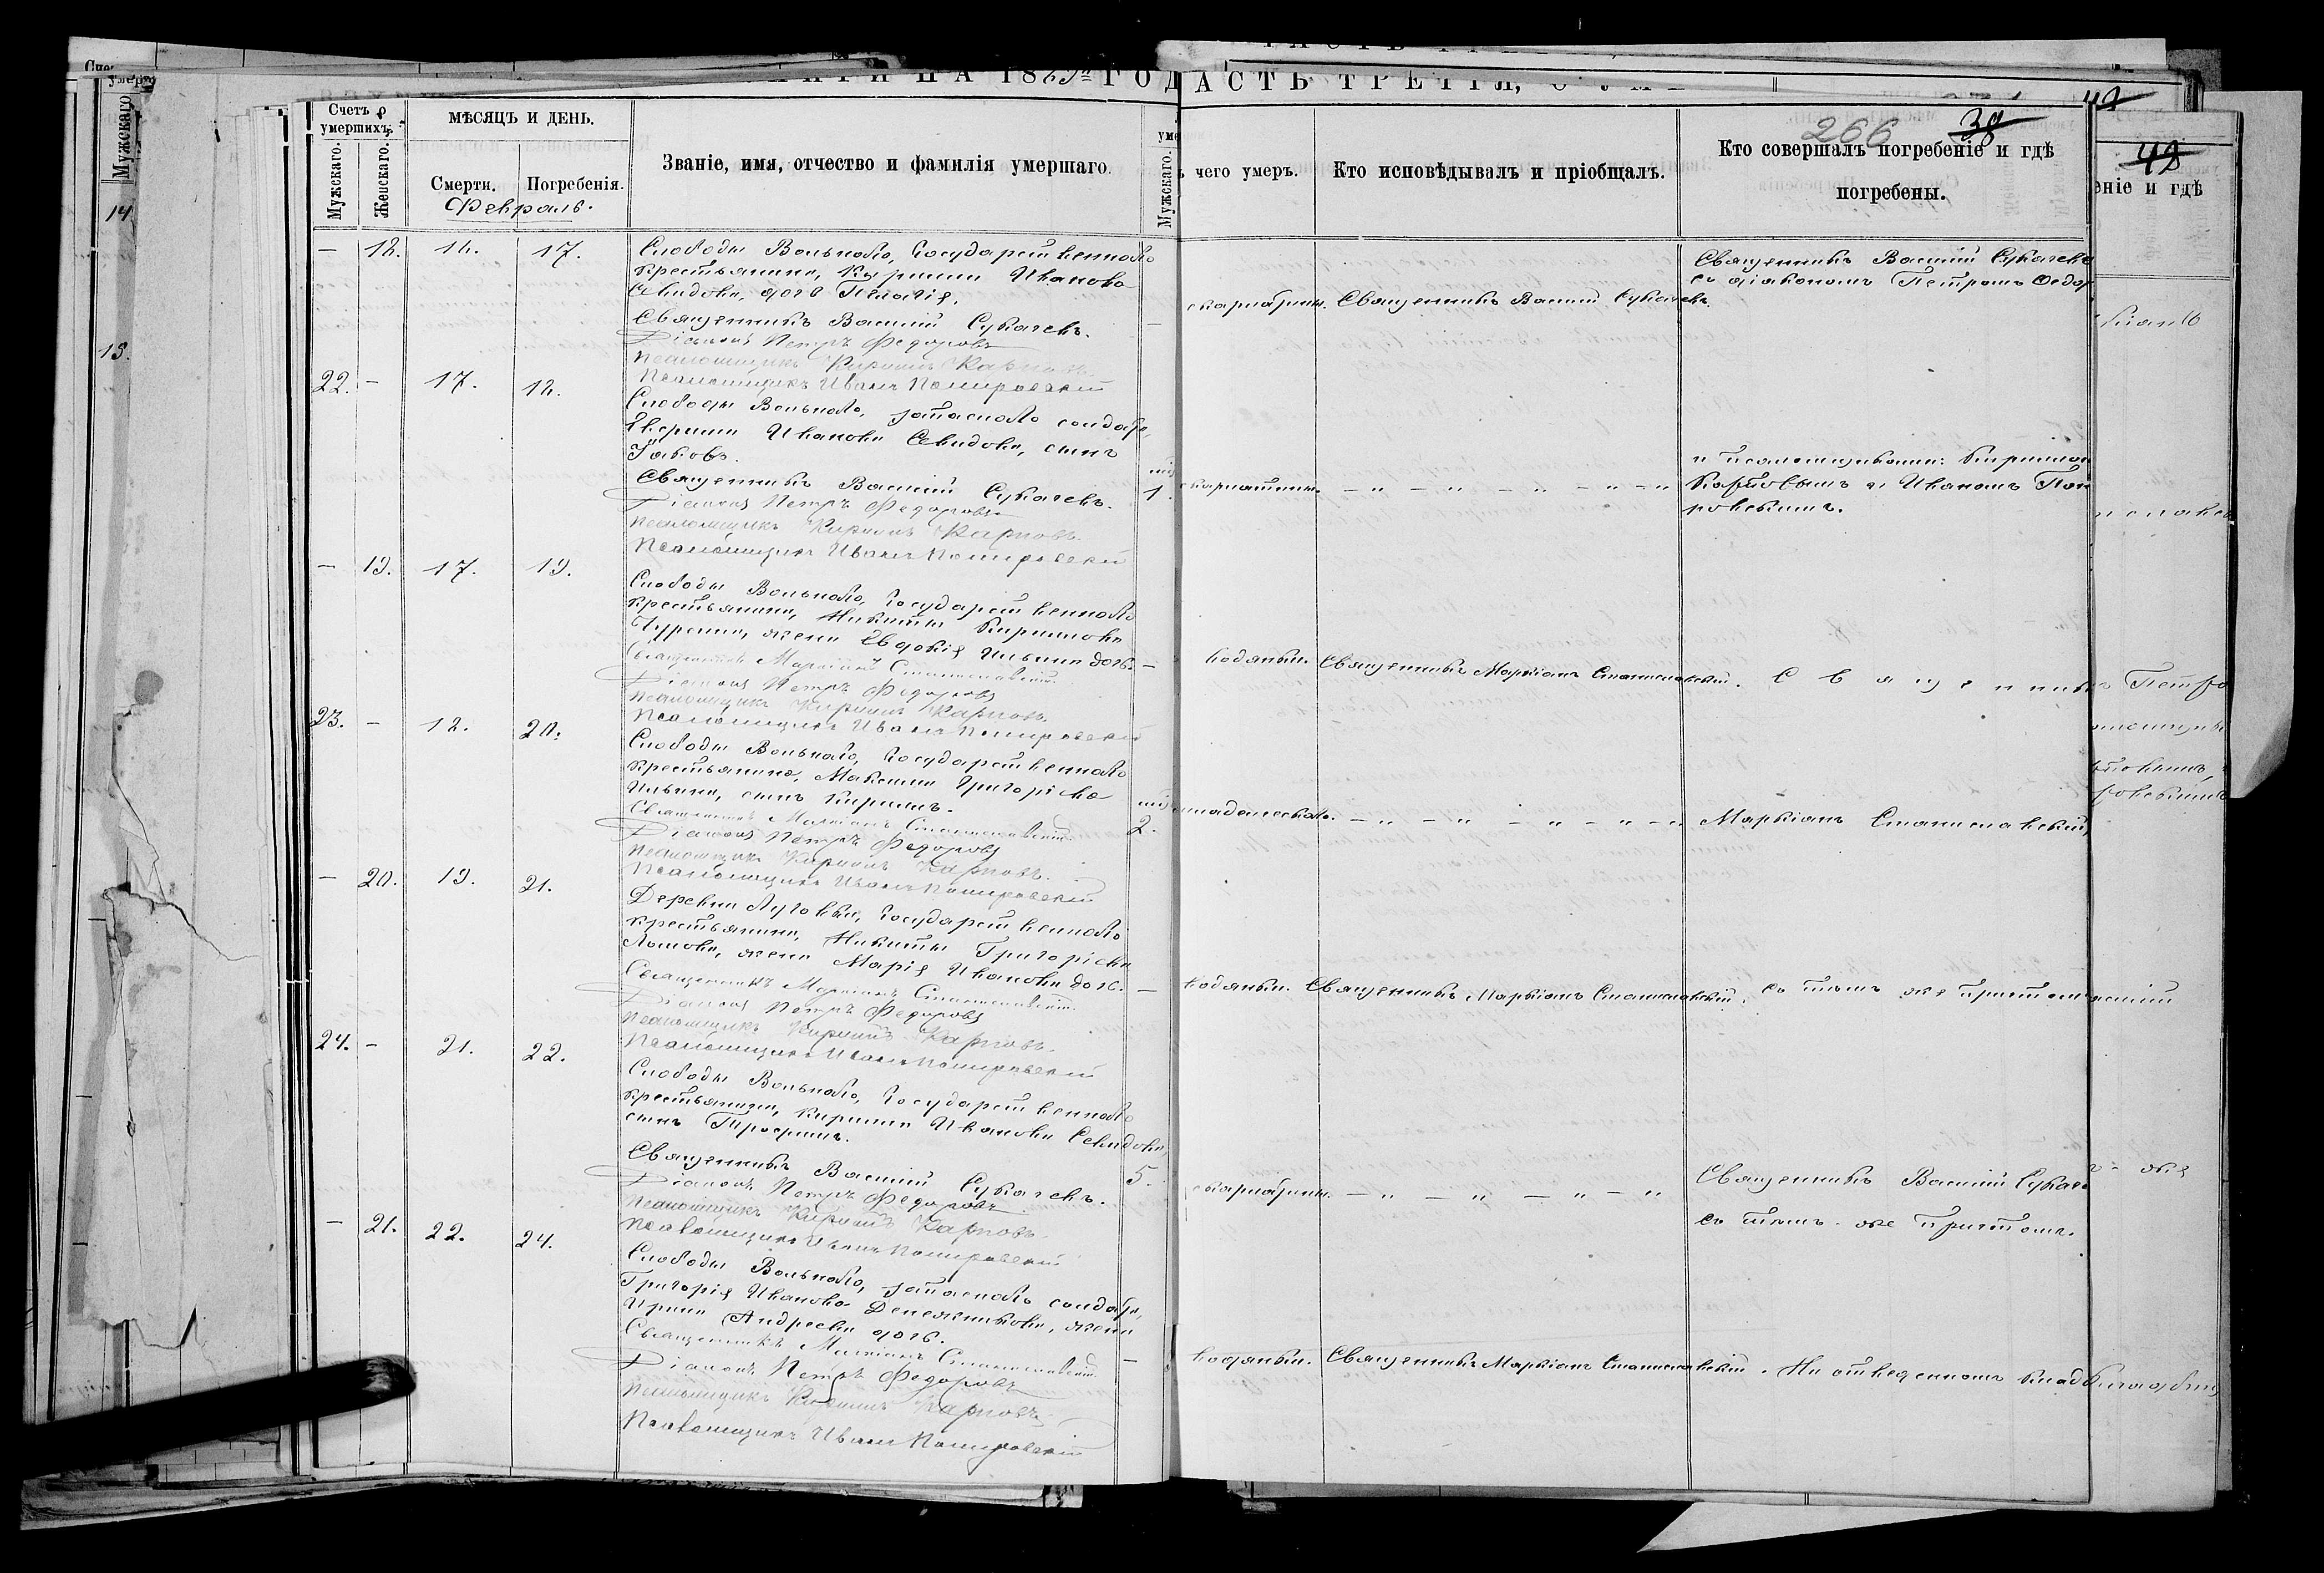 НА 1869й ГОД
АСТЬ ТРЕТІЯ,
Счетъ умершихъ.
Мужскаго.
Женскаго.
МѢСЯЦЪ И ДЕНЬ.
Смерти.
Погребенія.
Февраль.
Званіе, имя, отчество и фамилія умершаго.
Мужскаго.
чего умеръ.
Кто исповѣдывалъ и пріобщалъ.
Кто совершалъ погребеніе и гдѣ
погребены.
266
38
42
42
еніе и гдѣ
Мужскаго
14
— 18. 16. 17.
Слободы Вольнаго, Государственнаго
крестьянина, Кирилла Иванова
Свидова, дочь Пелагія.
Священникъ Василій Сукачевъ.
Діаконъ Петръ Федоровъ
Псаломщикъ Кирилъ Карповъ
Псаломщикъ Иванъ Покировскій
скарлатины. Священникъ Василій Сукачевъ.
Священникъ Василій Сукачевъ
съ діакономъ Петромъ Федор
22. — 17. 18.
Слободы Вольнаго, запаснаго солдата,
Иванова Свидова, сынъ
Іаковъ.
Священникъ Василій Сукачевъ.
Діаконъ Петръ Федоровъ
Псаломщикъ Кирилъ Карповъ
Псаломщикъ Иванъ Покировскій
1.
скарлатины. — „ — „ — „ — „ — „
и псаломщиками: Кирилломъ
Карповымъ и Иваномъ Пок
ровскимъ.
— 19. 17. 19.
Слободы Вольнаго, Государственнаго
крестьянина, Никиты Кириллова
жена Евдокія Ильина дочь.
Священникъ Маркіанъ Станиславскій
Діаконъ Петръ Федоровъ
Псаломщикъ Кирилъ Карповъ
Псаломщикъ Иванъ Покировскій
водянки. Священникъ Маркіанъ Станиславскій.
Священникъ
23. — 18. 20.
Слободы Вольнаго, Государственнаго
крестьянина, Максима Григорієва
Ильина, сынъ Кириллъ.
Священникъ Маркіанъ Станиславскій
Діаконъ Петръ Федоровъ
Псаломщикъ Кирилъ Карповъ
Псаломщикъ Иванъ Покировскій
2.
младенческаго. — „ — „ — „ — „ — „
Маркіанъ Станиславскій,
— 20. 19. 21.
Деревни Луговки, Государственнаго
крестьянина, Никиты Григоріева
жена Марія Иванова дочь.
Священникъ Маркіанъ Станиславскій
Діаконъ Петръ Федоровъ
Псаломщикъ Кирилъ Карповъ
Псаломщикъ Иванъ Покировскій
водянки. Священникъ Маркіанъ Станиславскій.
съ тѣмъ же причтом
24. — 21. 22.
Слободы Вольнаго, Государственнаго
крестьянина, Кирилла Иванова Свидова,
сынъ Трофимъ.
Священникъ Василій Сукачевъ.
Діаконъ Петръ Федоровъ
Псаломщикъ Кирилъ Карповъ
Псаломщикъ Иванъ Покировскій
5.
скарлатины. — „ — „ — „ — „
Священникъ Василій Сукаче
съ тѣмъ же причтомъ.
— 21. 22. 24.
Слободы Вольнаго, запаснаго солдата,
Григорія Иванова Денежникова, жена
Ирина Андреева дочь.
Священникъ Маркіанъ Станиславскій
Діаконъ Петръ Федоровъ
Псаломщикъ Кирилъ Карповъ
Псаломщикъ Иванъ Покировскій
водянки. Священникъ Маркіанъ Станиславскій.
На отведенномъ клад